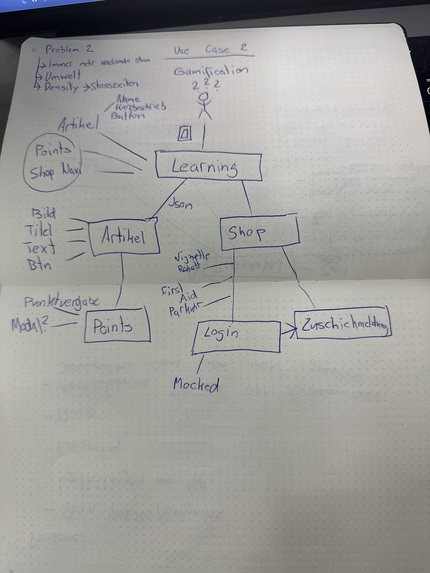 Problem 2
Immer mehr
Umwelt
Density → Stosszeiten
Use Case 2
Gamification
? ? ?
Artikel
Name
Kurzbeschrieb
Button
Points
Shop Navi
Learning
Json
Bild
Titel
Text
Btn
Artikel
Shop
Vignette
Rabatt
First
Aid
Parkuhr
Punktvergabe
Modal?
Points
Login
Mocked